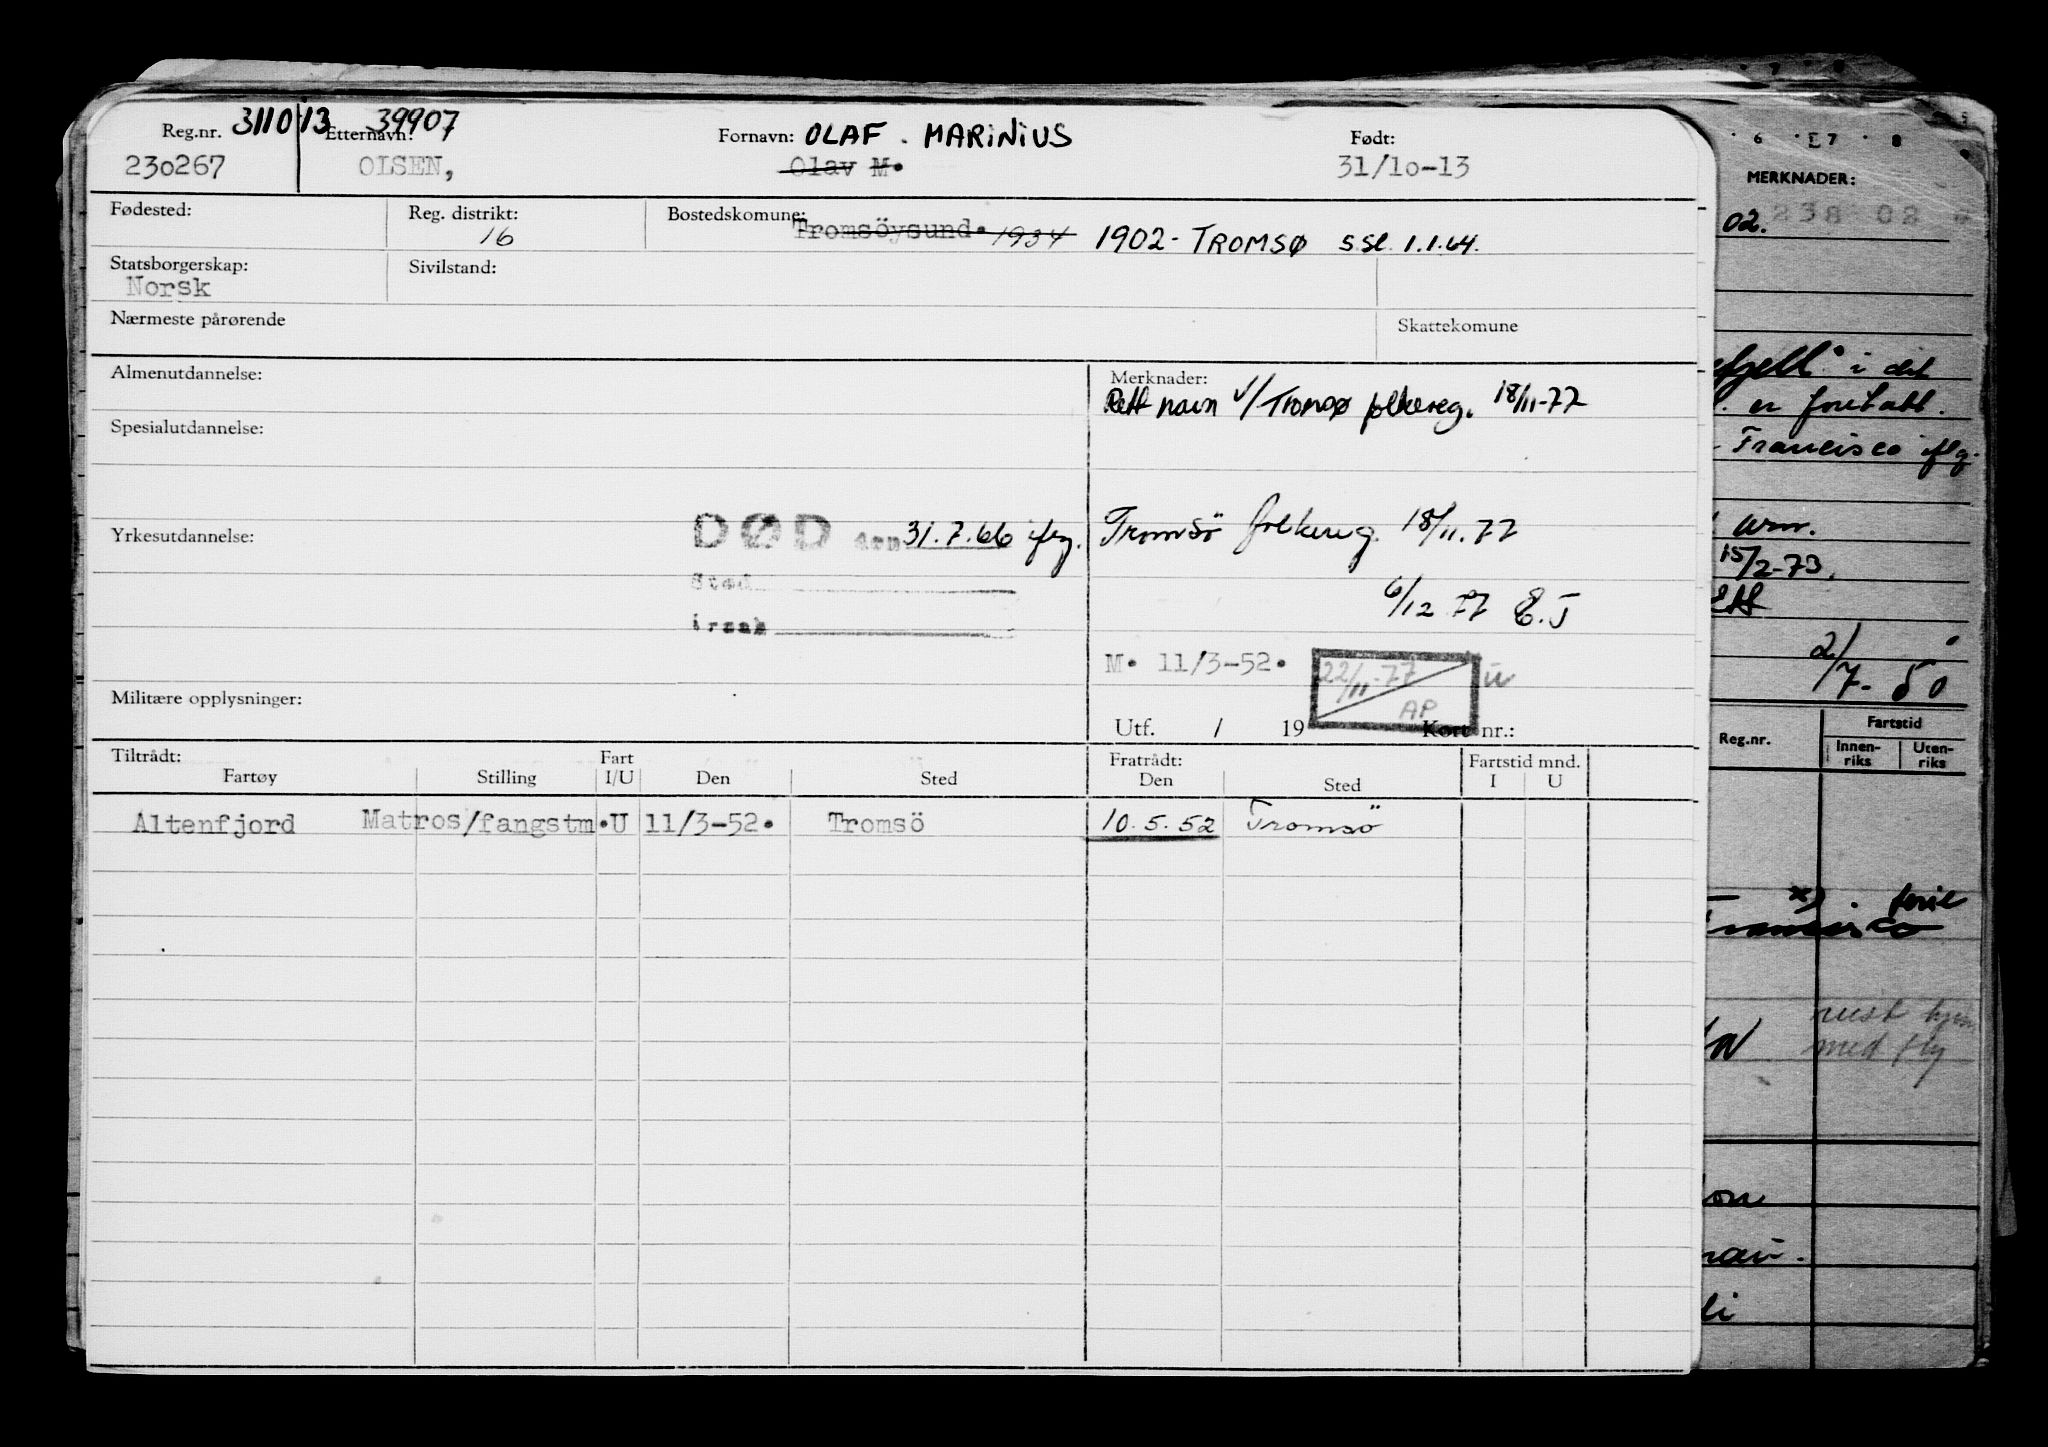 Reg.nr. 311013 39907 Etternavn: Fornavn: OLAF. MARINIUS Født:
230267 OLSEN, Olav M. 31/10-13
Fødested: Reg. distrikt: Bostedskomune:
16 Tromsöysund. 1934 1902- TROMSØ s.sl. 1.1.64.
Statsborgerskap: Sivilstand:
Norsk
Nærmeste pårørende Skattekomune
Almenutdannelse: Merknader:
Rett navn v/Tromsø folkereg. 18/11-77
Spesialutdannelse:
Yrkesutdannelse: DØD den 31.7.66 iflg. Tromsö folkereg. 18/11.77
Sted
6/12 77 E.J
årsak
M. 11/3-52. 22/11-77 AP
Militære opplysninger:
Utf. / 19 Kort nr.:
Tiltrådt: Fart Fratrådt: Fartstid mnd.
Fartøy Stilling I/U Den Sted Den Sted I U
Altenfjord Matros/fangstm.U 11/3-52. Tromsö 10.5.52 Tromsö
6 E7 8
MERKNADER:
02. 238 02
fjell" i det
. er foretatt.
Francisco iflg.
15/2-73.
2/7-50
Reg.nr. Fartstid
Innen-riks Uten-riks
x) ferie
med fly